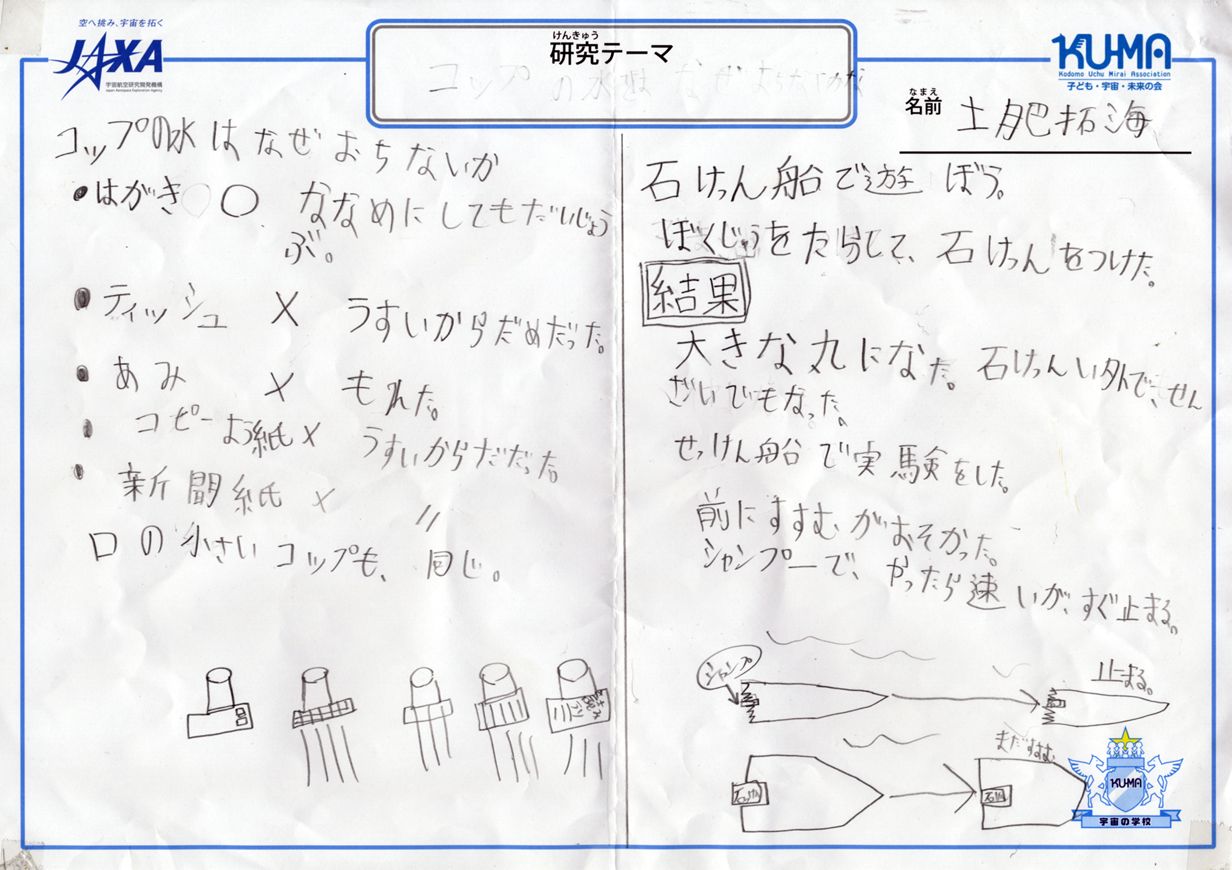 空へ挑み、宇宙を拓く
JAXA
宇宙航空研究開発機構
Japan Aerospace Exploration Agency
けんきゅう
研究テーマ
コップの水はなぜおちないか
KU-MA
Kodomo Uchu Mirai Association
子ども・宇宙・未来の会
なまえ
名前 土肥拓海
コップの水はなぜおちないか
●はがき ○ ななめにしてもだいじょう
ぶ。
●ティッシュ × うすいからだめだった。
●あみ × もれた。
●コピーよう紙 × うすいからだだった。
●新聞紙 × 〃
口の小さいコップも、同じ。
石けん船で遊ぼう。
ぼくじゅうをたらして、石けんをつけた。
結果
大きな丸になた。石けんい外で、せん
ざいでもなった。
せっけん船で実験をした。
前にすすむがおそかった。
シャンプーで、やったら速いが、すぐ止まる。
シャンプ
止まる。
まだすすむ
石けん
石けん
KU-MA
宇宙の学校